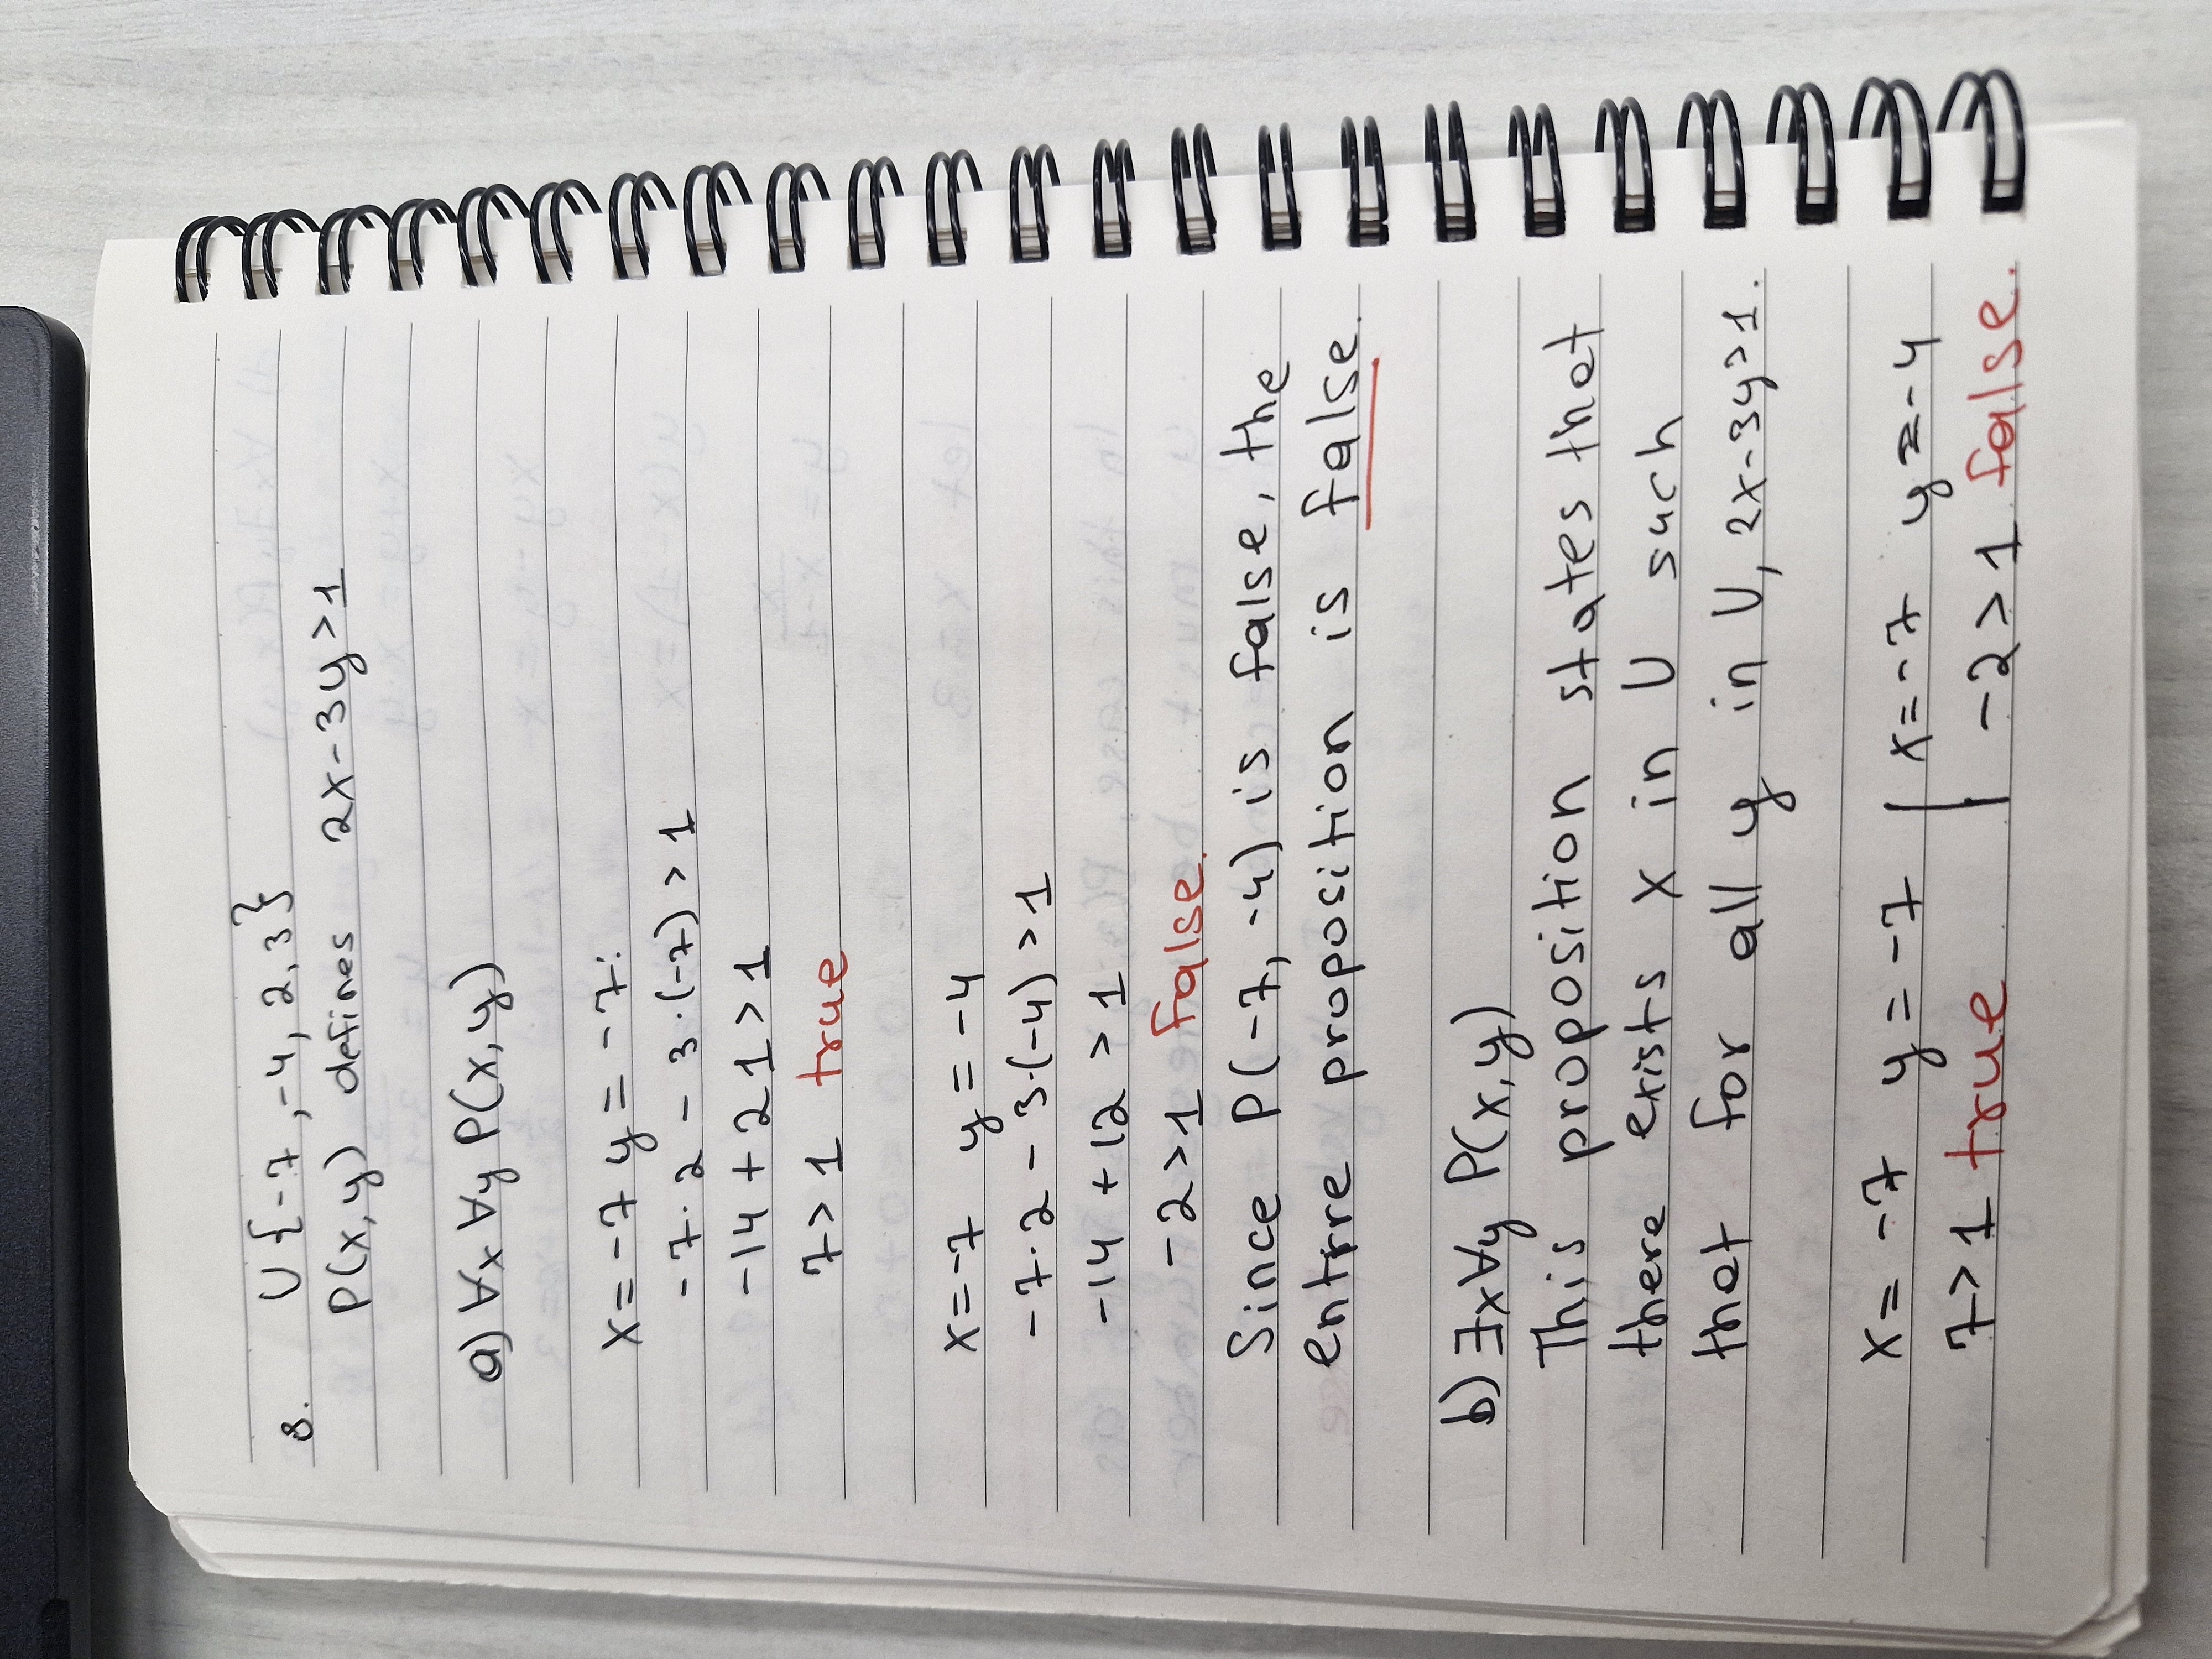 8. U {-7, -4, 2, 3}
P(x, y) defines 2x-3y>1
a) ∀x ∀y P(x, y)
x = -7 y = -7:
-7·2 - 3·(-7) > 1
-14 + 21 > 1
7 > 1 true
x = -7 y = -4
-7·2 - 3·(-4) > 1
-14 + 12 > 1
-2 > 1 false.
Since P(-7, -4) is false, the
entire proposition is false.
b) ∃x∀y P(x, y)
This proposition states that
there exists x in U such
that for all y in U, 2x-3y>1.
x = -7 y = -7 | x = -7 y = -4
7 > 1 true | -2 > 1 false.